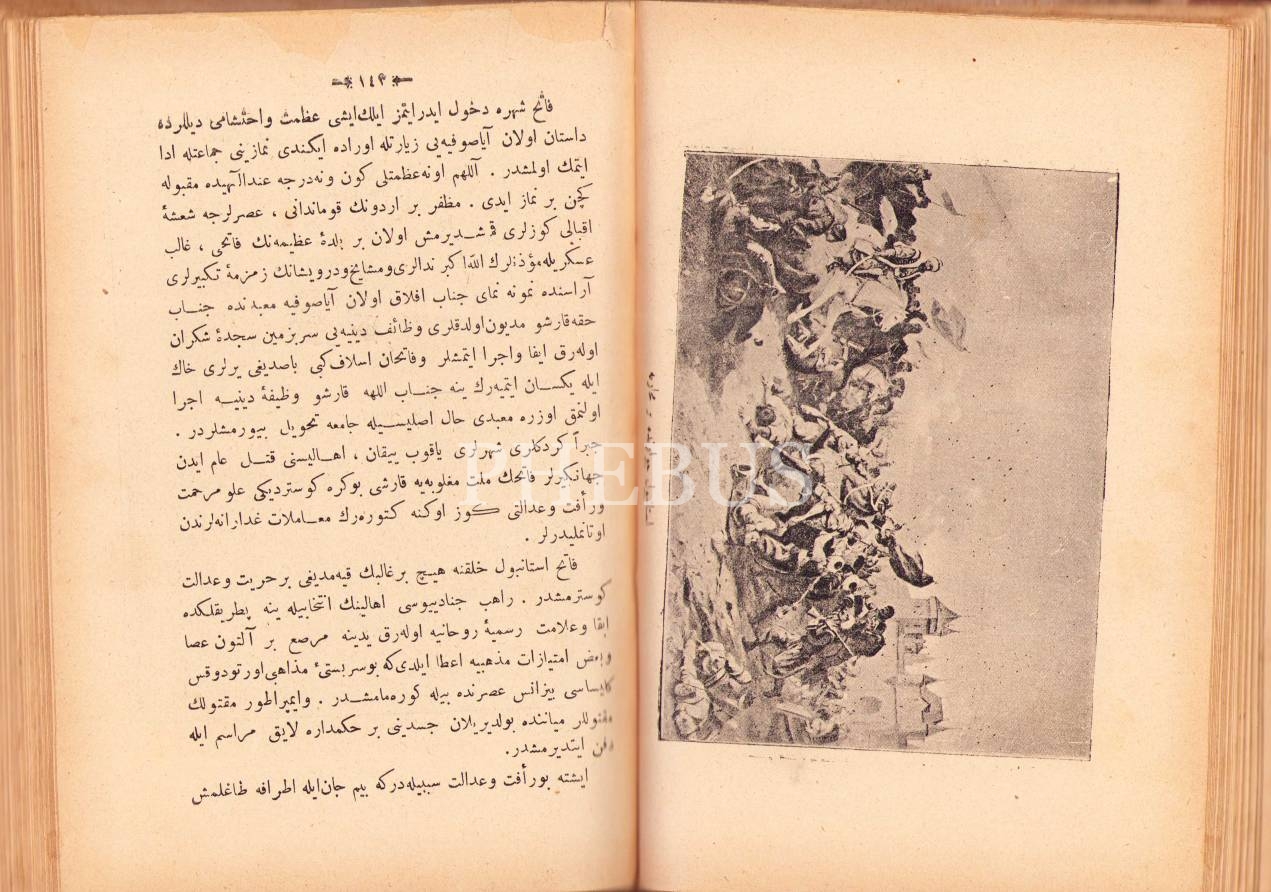 ١٤٣
فاتح شهره دخول ایدر ایتمز ایلك ایشی عظمت و احتشامی دیللرده
داستان اولان آیاصوفیه‌یی زیارتله اوراده ایكندی نمازینی جماعتله ادا
ایتمك اولمشدر . آللهم او نه عظمتلی كون و نه درجه عندالآلهیده مقبوله
كچن بر نماز ایدی . مظفر بر اردونك قوماندانی ، عصرلرجه شعشۀ
اقبالی كوزلری قمشدیرمش اولان بر بلدۀ عظیمه‌نك فاتحی ، غالب
عسكریله مؤذنلرك الله اكبر ندالری و مشایخ و درویشانك زمزمۀ تكبیرلری
آراسنده نمونه نمای جناب افلاق اولان آیاصوفیه معبدنده جناب
حقه قارشو مدیون اولدقلری وظائف دینیه‌یی سربزمین سجدۀ شكران
اوله‌رق ایفا و اجرا ایتمشلر و فاتحان اسلاف كبی باصدیغی یرلری خاك
ایله یكسان ایتمیه‌رك ینه جناب اللهه قارشو وظیفۀ دینیه اجرا
اولنمق اوزره معبدی حال اصلیسیله جامعه تحویل بیورمشلردر .
جبراً كردكلری شهرلری یاقوب ییقان ، اهالیسنی قتل عام ایدن
جهانكیرلر فاتحك ملت مغلوبه‌یه قارشی بوكره كوستردیكی علو مرحمت
ورأفت وعدالتی كوز اوكنه كتوره‌رك معاملات غدارانه‌لرندن
اوتانملیدرلر .
فاتح استانبول خلقنه هیچ بر غالبك قیه‌مدیغی بر حریت وعدالت
كوسترمشدر . راهب جنادییوسی اهالینك انتخابیله ینه پطریقلكده
ابقا وعلامت رسمیۀ روحانیه اوله‌رق یدینه مرصع بر آلتون عصا
وبعض امتیازات مذهبیه اعطا ایلدی كه بو سربستئ مذاهبی اورتودوقس
كلیساسی بیزانس عصرنده بیله كوره‌مامشدر . وایمپراطور مقتولك
مقتوللر میاننده بولدیریلان جسدینی بر حكمداره لایق مراسم ایله
دفن ایتدیرمشدر.
ایشته بو رأفت وعدالت سببیله‌در كه بیم جان ایله اطرافه طاغلمش
PHEBUS